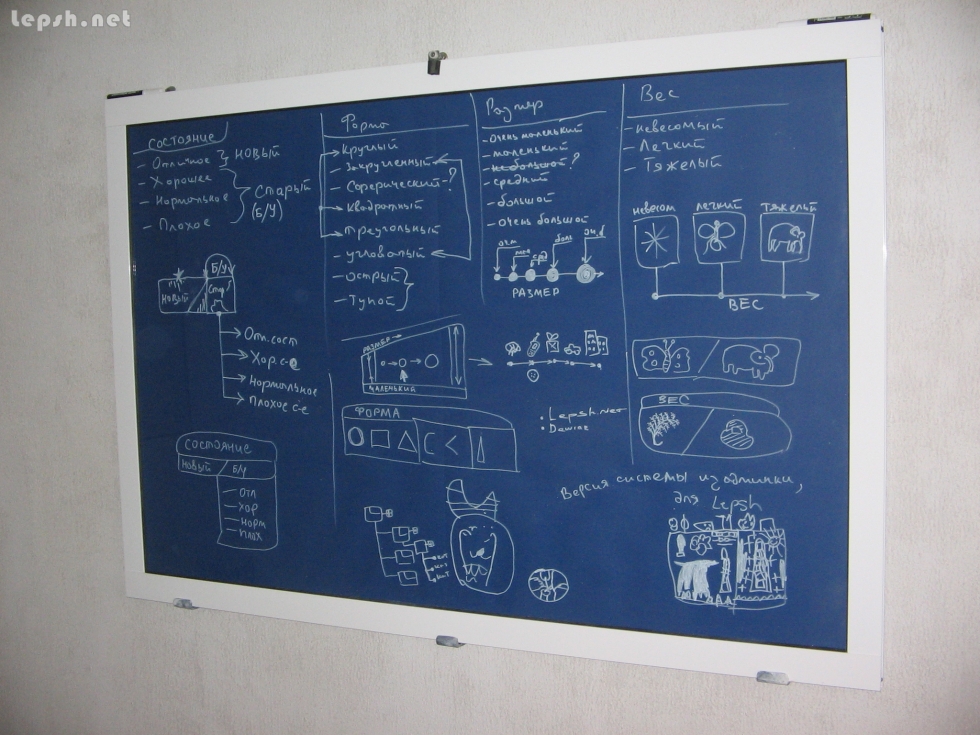 Lepsh.net
состояние
- Отличное } новый
- Хорошее
- Нормальное } Старый (Б/У)
- Плохое
Б/У
новый
Стар
Отл. сост
Хор. с-е
Нормальное
Плохое с-е
состояние
новый / Б/У
- отл
- хор
- норм
- плох
Форма
- Круглый
- Закругленный
- Сферический - ?
- Квадратный
- Треугольный
- угловатый
- острый }
- Тупой
РАЗМЕР
МАЛЕНЬКИЙ
ФОРМА
Размер
- очень маленький
- маленький
- небольшой ?
- средний
- большой
- очень большой
очм
мал
срд
бол
оч.б
РАЗМЕР
• Lepsh.net
Вес
- невесомый
- Легкий
- Тяжелый
невесом
легкий
тяжелый
ВЕС
ВЕС
Версия системы из админки,
для Lepsh